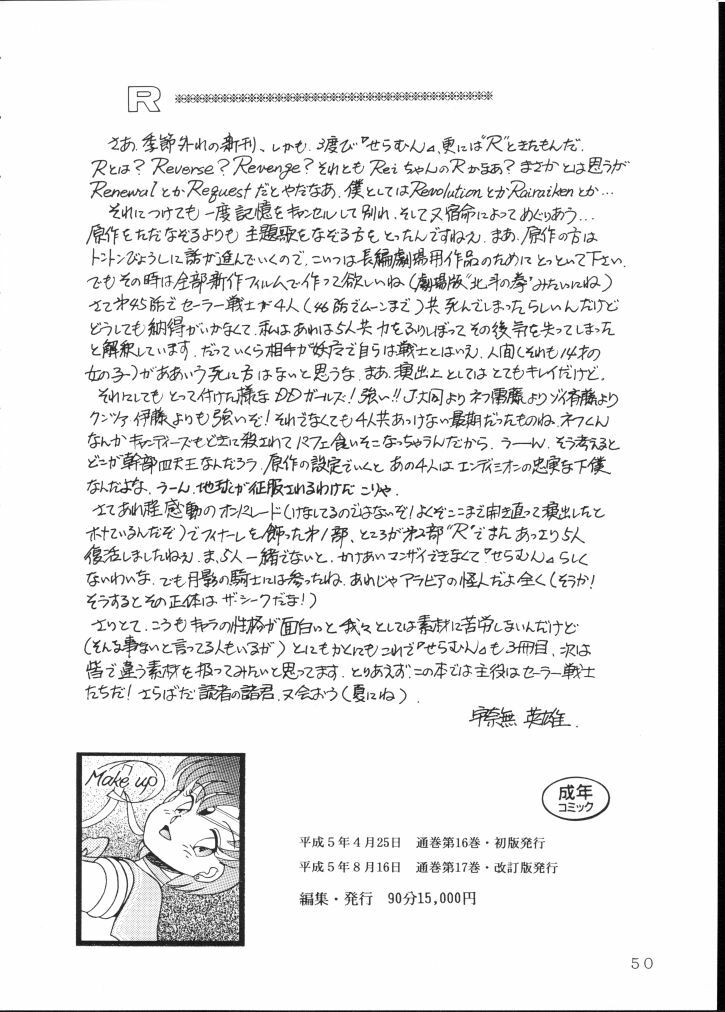 R
さあ、季節外れの新刊、しかも、3度び『せらむん』、更には"R"ときたもんだ。
Rとは？Reverse？Revenge？それとも ReiちゃんのRかなあ？まさかとは思うが
RenewalとかRequestだとやだなあ。僕としてはRevolutionとかRairaikenとか…
それにつけても一度記憶をキャンセルして別れ、そして又宿命によってめぐりあう…
原作をただなぞるよりも主題歌をなぞる方をとったんですねえ。まあ、原作の方は
トントンびょうしに話が進んでいくので、こいつは長編劇場用作品のためにとっといて下さい。
でもその時は全部新作フィルムで作って欲しいね（劇場版"北斗の拳"みたいにね）
さて第45話でセーラー戦士が4人（46話でムーンまで）共死んでしまったらしいんだけど
どうしても納得がいかなくて、私はあれは5人共力をふりしぼってその後気を失ってしまった
と解釈しています。だっていくら相手が妖魔で自らは戦士とはいえ、人間（それも14才の
女の子）がああいう死に方はないと思うな。まあ、演出上としてはとてもキレイだけど。
それにしてもとって付けた様なDDガールズ！強い！！J大同よりネフ雷藤よりゾイ斉藤より
クンツァ伊藤よりも強いぞ！それでなくても4人共あっけない最期だったものね。ネフくん
なんかキャンディーズもどきに殺されてパフェ食いそこなっちゃうんだから。うーん、そう考えると
どこが幹部四天王なんだろう。原作の設定でいくとあの4人はエンディミオンの忠実な下僕
なんだよな。うーん、地球が征服されるわけだ こりゃ。
さてあれ程感動のオンパレード（けなしてるのではないぞ！よくぞここまで開き直って演出したと
ホメているんだぞ）でフィナーレを飾った第1部、ところが第2部"R"でまたあっさり5人
復活しましたねえ。ま、5人一緒でないと、かけあいマンザイできなくて『せらむん』らしく
ないわいな。でも月影の騎士には参ったね。あれじゃアラビアの怪人だよ全く（そうか！
そうするとその正体はザ・シークだな！）
さりとて、こうもキャラの性格が面白いと我々としては素材に苦労しないんだけど
（そんな事ないと言ってる人もいるが）とにもかくにもこれで『せらむん』も3冊目、次は
皆で違う素材を扱ってみたいと思ってます。とりあえず、この本では主役はセーラー戦士
たちだ！さらばだ読者の諸君、又会おう（夏にね）
宇奈無 英雄
Make up
成年
コミック
平成５年４月25日　通巻第16巻・初版発行
平成５年８月16日　通巻第17巻・改訂版発行
編集・発行　90分15,000円
50